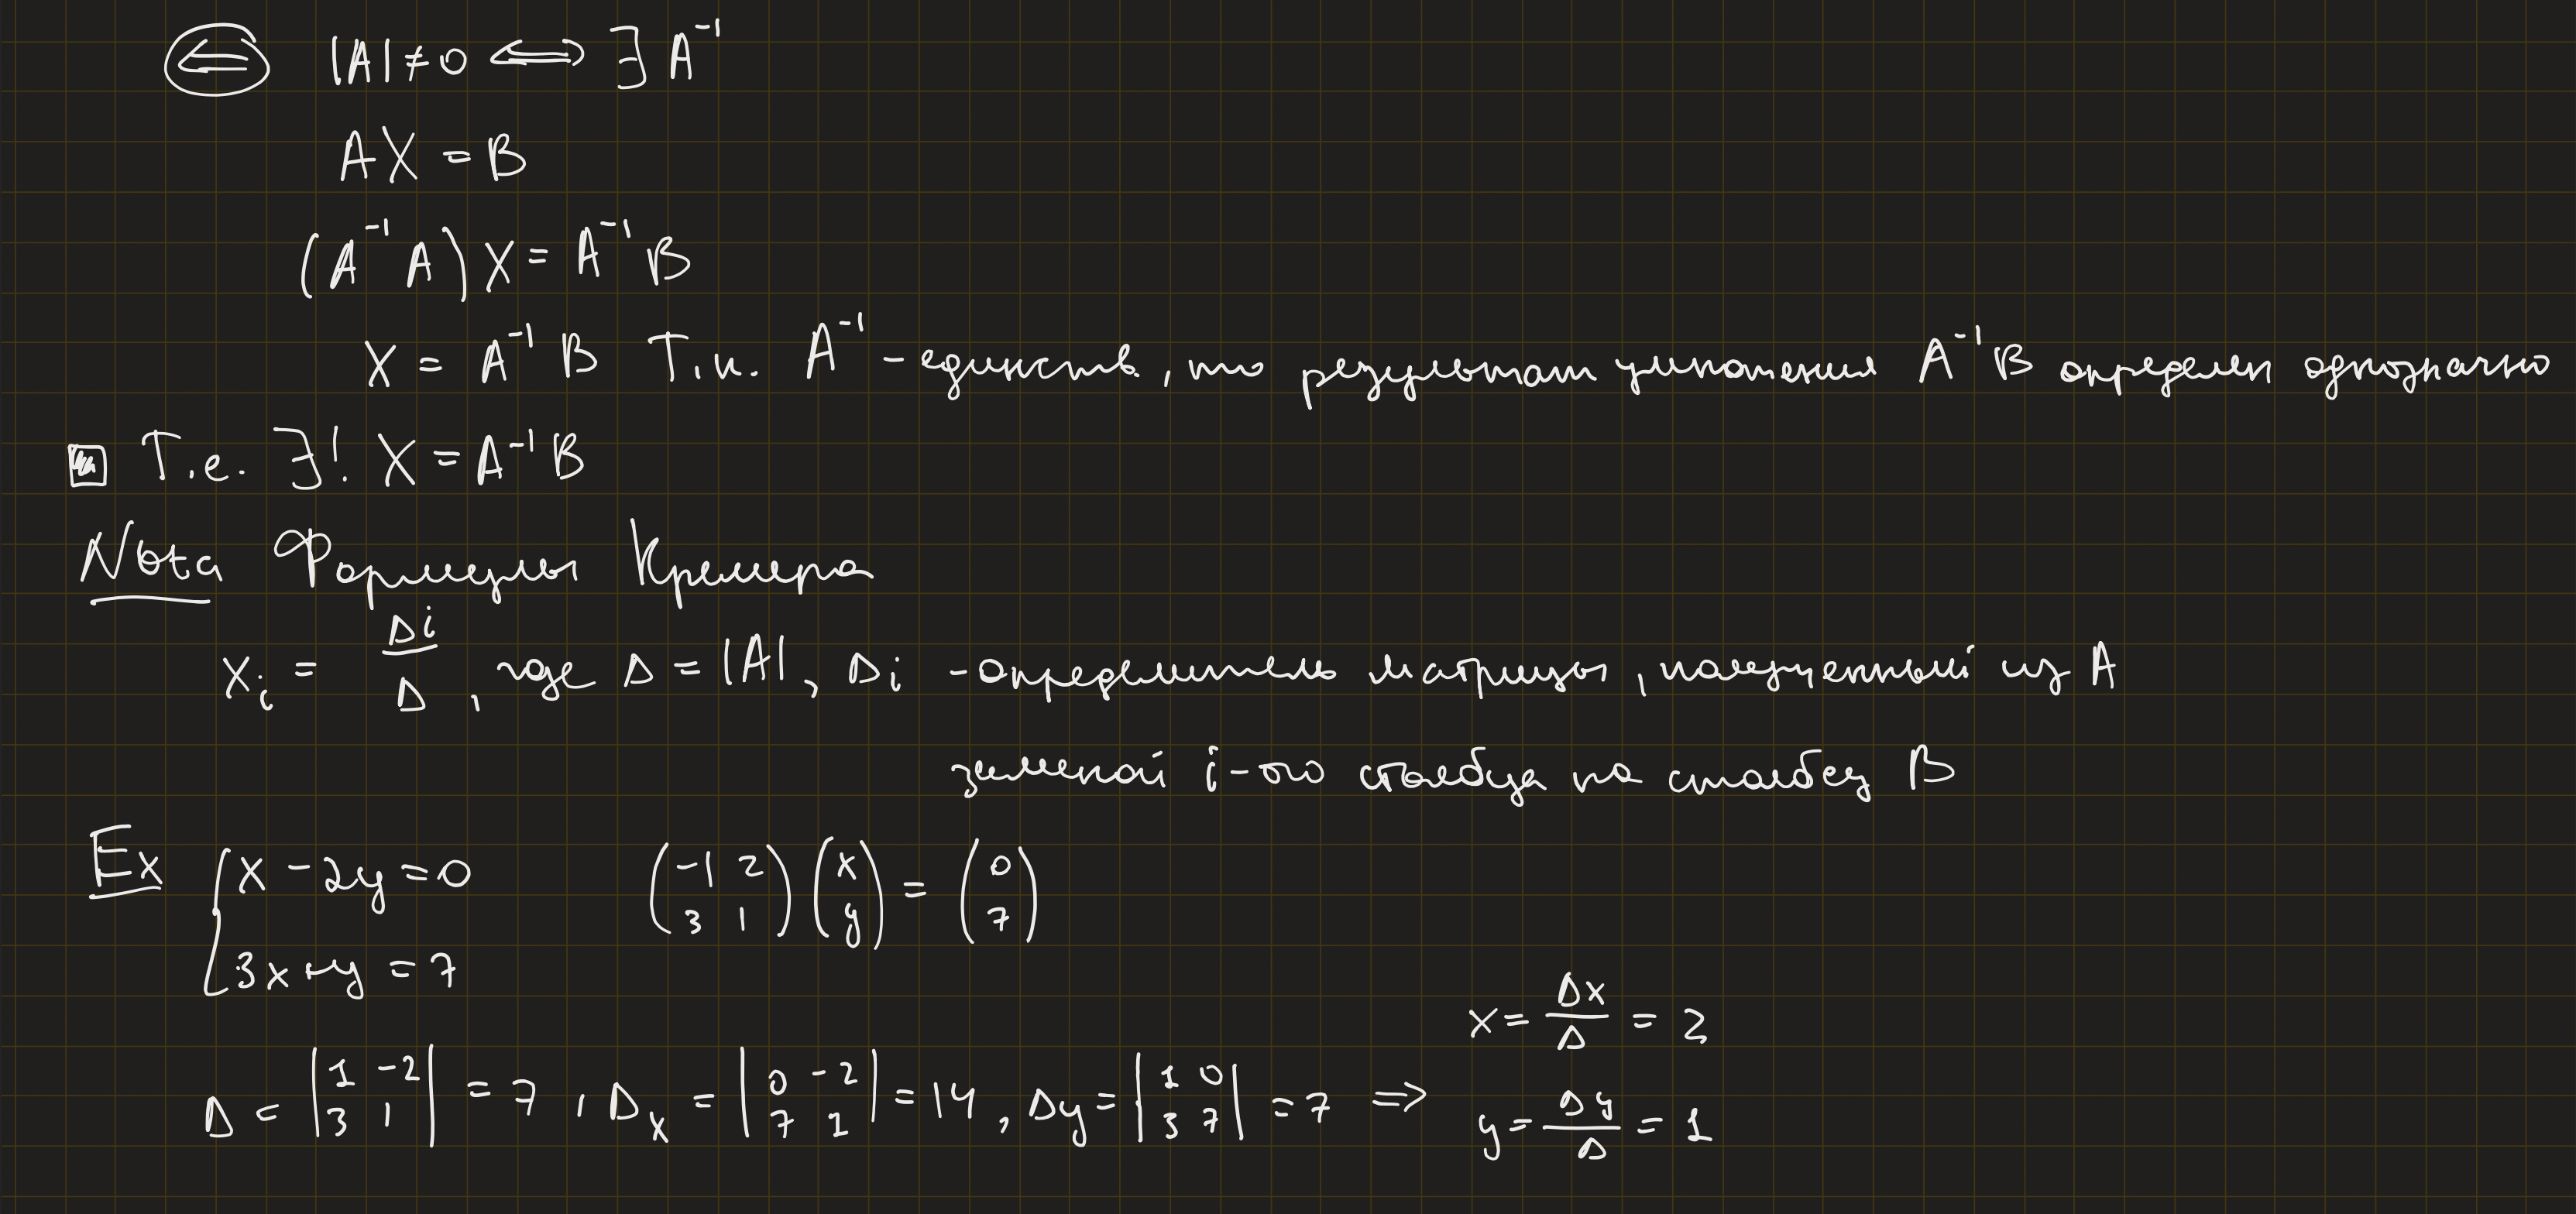 ⇐ |A| ≠ 0 ⟺ ∃ A⁻¹
AX = B
(A⁻¹A)X = A⁻¹B
X = A⁻¹B Т.к. A⁻¹ - единств., то результат умножения A⁻¹B определен однозначно
Т.е. ∃! X = A⁻¹B
Nota Формулы Крамера
xᵢ = Δi/Δ, где Δ = |A|, Δᵢ - определитель матрицы, полученный из A
заменой i-ого столбца на столбец B
Ex { x - 2y = 0 (-1 2; 3 1)(x; y) = (0; 7)
3x + y = 7
Δ = |1 -2; 3 1| = 7, Δₓ = |0 -2; 7 1| = 14, Δy = |1 0; 3 7| = 7 ⇒ x = Δx/Δ = 2
y = Δy/Δ = 1